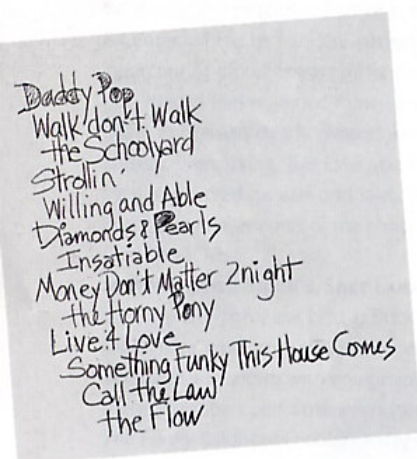 Daddy Pop
Walk don't Walk
the Schoolyard
Strollin'
Willing and Able
Diamonds & Pearls
Insatiable
Money Don't Matter 2night
the Horny Pony
Live 4 Love
Something Funky This House Comes
Call the Law
the Flow